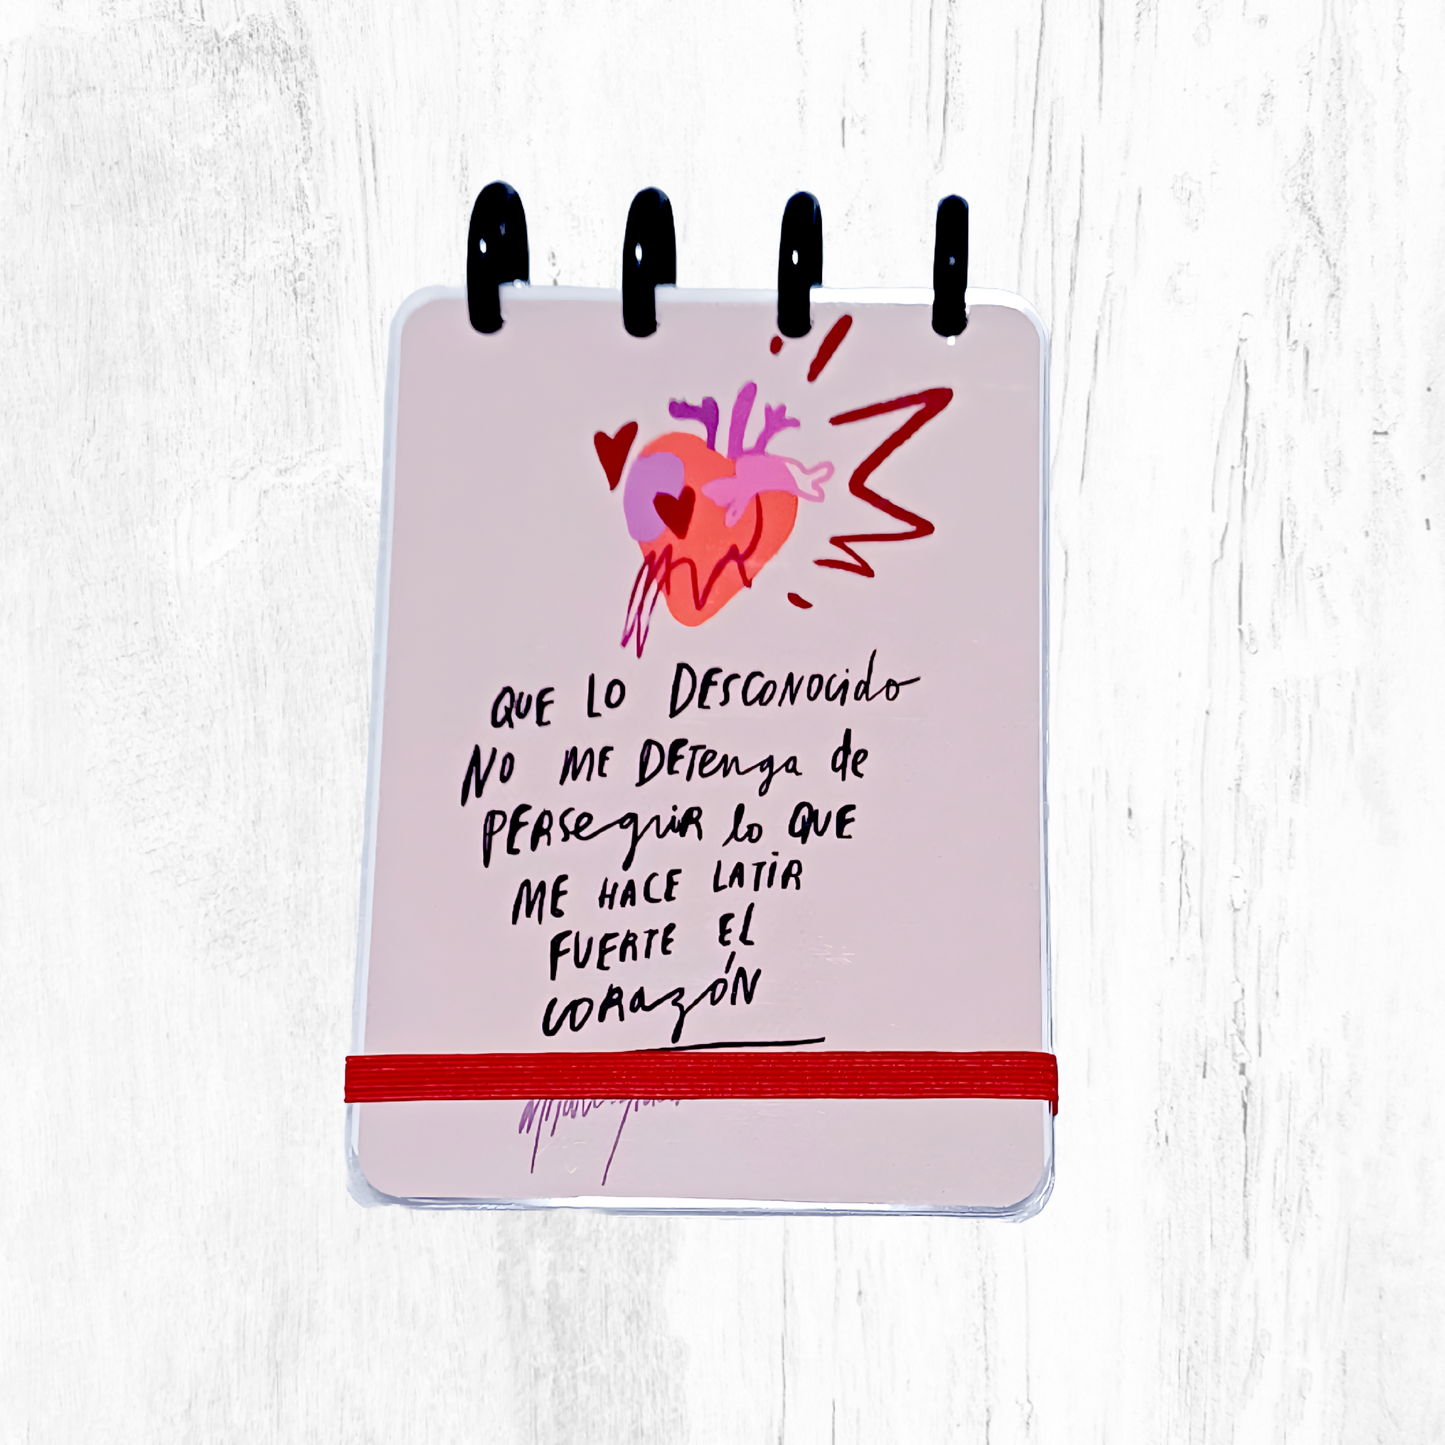 QUE LO DESCONOCIDO
NO ME DETENGA DE
PERSEGUIR LO QUE
ME HACE LATIR
FUERTE EL
CORAZÓN